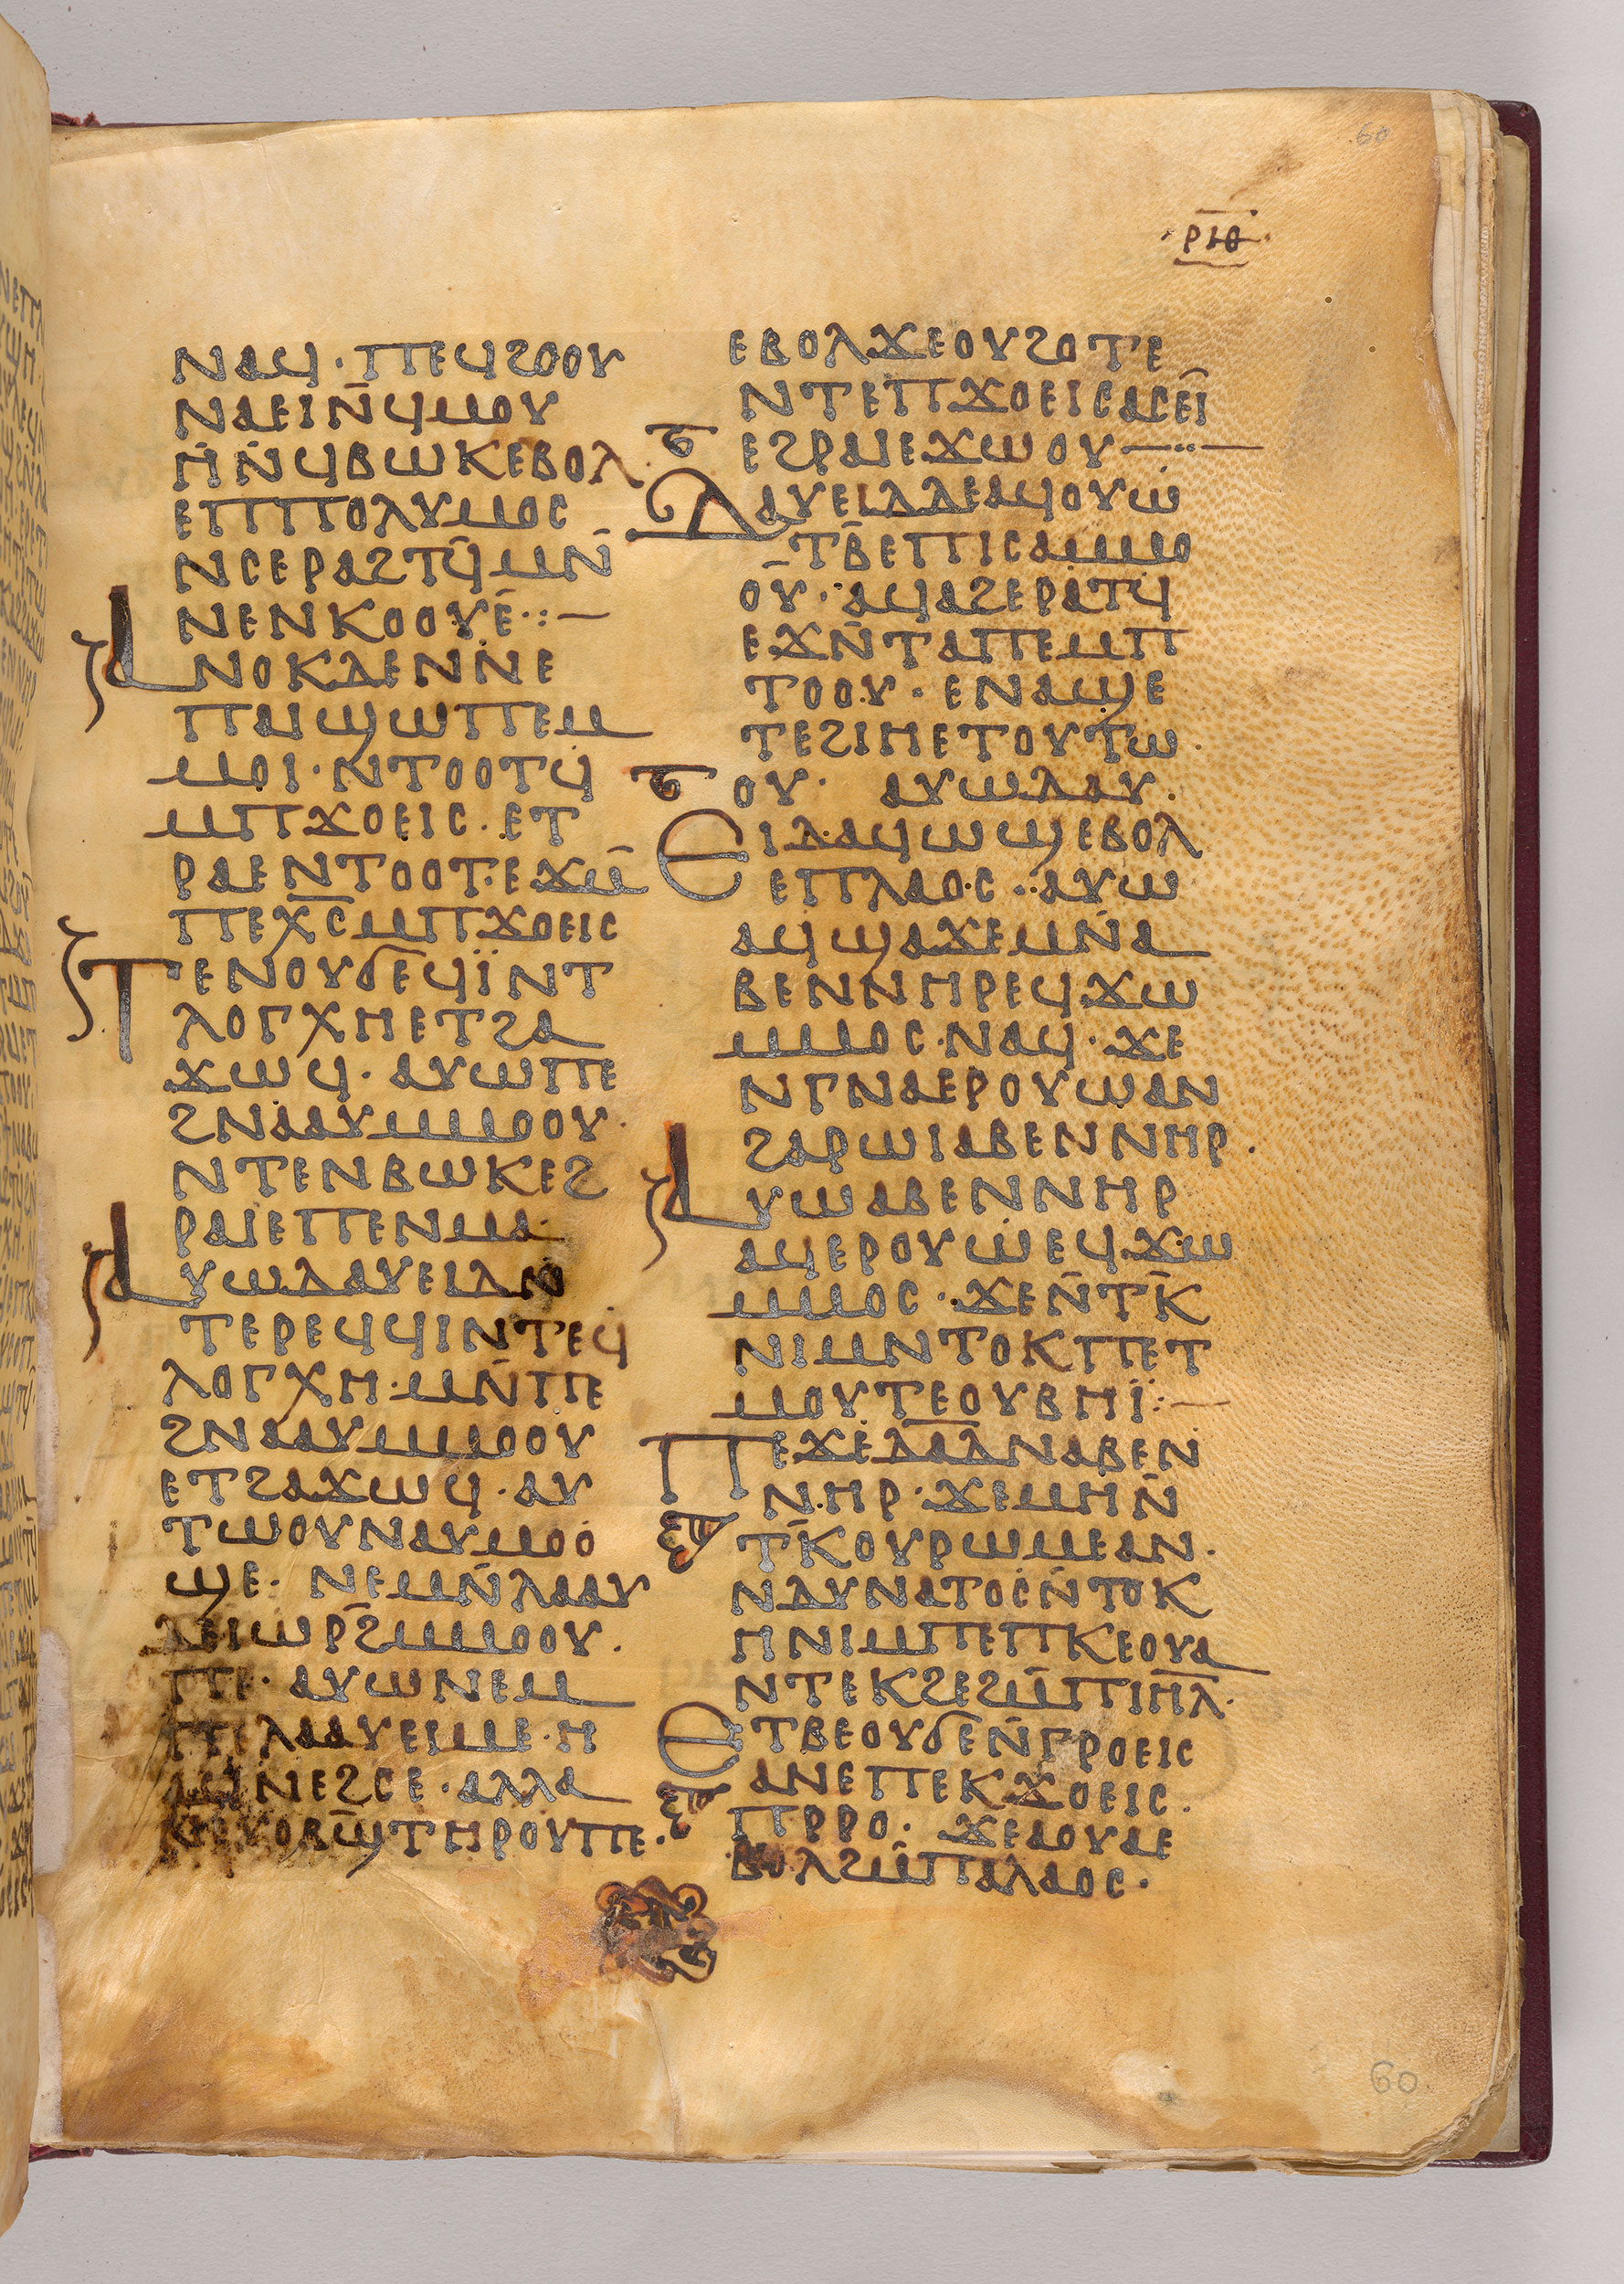 60
ⲣⲓⲑ
ⲛⲁϥ · ⲡⲉϥϩⲟⲟⲩ
ⲛⲁⲉⲓⲛ̄ϥⲙⲟⲩ
ⲏ̄ⲛ̄ϥⲃⲱⲕⲉⲃⲟⲗ
ⲉⲡⲡⲟⲗⲩⲙⲟⲥ
ⲛⲥⲉⲣⲁϩⲧϥ̄ⲙⲛ̄
ⲛⲉⲛⲕⲟⲟⲩⲉ̄ ·:—
ⲁⲛⲟⲕⲇⲉⲛ̄ⲛⲉ
ⲡⲁⲓϣⲱⲡⲉⲙ
ⲙⲟⲓ · ⲛⲧⲟⲟⲧϥ
ⲙⲡϫⲟⲉⲓⲥ · ⲉⲧ
ⲣⲁⲉⲛⲧⲟⲟⲧ · ⲉϫⲙ̄
ⲡⲉⲭ̄ⲥ̄ⲙⲡϫⲟⲉⲓⲥ
ⲧⲉⲛⲟⲩϭⲉϥⲓ̈ⲛⲧ
ⲗⲟⲅⲭⲏⲉⲧϩⲁ
ϫⲱϥ · ⲁⲩⲱⲡⲉ
ϩⲛⲁⲁⲩⲙⲙⲟⲟⲩ ·
ⲛⲧⲉⲛⲃⲱⲕⲉϩ
ⲣⲁⲓⲉⲡⲉⲛⲙⲁ ·
ⲁⲩⲱⲇⲁⲩⲉⲓⲇⲛ
ⲧⲉⲣⲉϥϥⲓⲛⲧⲉϥ
ⲗⲟⲅⲭⲏ · ⲙⲛ̄ⲡⲉ
ϩⲛⲁⲁⲩⲙⲙⲟⲟⲩ
ⲉⲧϩⲁϫⲱϥ · ⲁⲩ
ⲧⲱⲟⲩⲛⲁⲩⲙⲟⲟ
ϣⲉ · ⲛⲉⲙⲛ̄ⲗⲁⲁⲩ
ⲇⲉⲓⲱⲣϩ̄ⲙⲙⲟⲟⲩ ·
ⲡⲉ · ⲁⲩⲱⲛⲉⲙ
ⲡⲗⲁⲁⲩⲉⲓⲙⲉ · ⲏ
ⲛⲉϩⲥⲉ · ⲁⲗⲗⲁ
ⲟⲃϣ̄ⲧⲏⲣⲟⲩⲡⲉ ·
ⲉⲃⲟⲗϫⲉⲟⲩϩⲟⲧⲉ
ⲛⲧⲉⲡϫⲟⲉⲓⲥⲁⲥⲉⲓ̄
ⲉϩⲣⲁⲓⲉϫⲱⲟⲩ —··—
ⲇⲁⲩⲉⲓⲇⲇⲉⲁϥⲟⲩⲱ
ⲧⲃ̄ⲉⲡⲓⲥⲁⲙⲙⲟ
ⲟⲩ̄ · ⲁϥⲁϩⲉⲣⲁⲧϥ
ⲉϫⲛ̄ⲧⲁⲡⲉⲙⲡ
ⲧⲟⲟⲩ · ⲉⲛⲁϣⲉ
ⲧⲉϩⲓⲏⲉⲧⲟⲩⲧⲱ ·
ⲟⲩ · ⲁⲩⲱⲇⲁⲩ ·
ⲉⲓⲇ · ⲁϥⲱϣⲉⲃⲟⲗ
ⲉⲡⲗⲁⲟⲥ · ⲁⲩⲱ
ⲁϥϣⲁϫⲉⲙⲛ̄ⲁ
ⲃⲉⲛⲛⲏⲣⲉϥϫⲱ
ⲙⲙⲟⲥ · ⲛⲁϥ · ϫⲉ
ⲛⲅⲛⲁⲉⲣⲟⲩⲱⲁⲛ
ϩⲁⲣⲱⲓⲁⲃⲉⲛⲛⲏⲣ ·
ⲁⲩⲱⲁⲃⲉⲛⲛⲏⲣ
ⲁϥⲉⲣⲟⲩⲱⲉϥϫⲱ
ⲙⲙⲟⲥ · ϫⲉⲛ̄ⲧⲕ̄
ⲛⲓⲙⲛⲧⲟⲕⲡⲉⲧ
ⲙⲟⲩⲧⲉⲟⲩⲃⲏⲓ̈ :—
ⲡⲉϫⲉⲇ̄ⲁ̄ⲇ̄ⲛⲁⲃⲉⲛ
ⲛⲏⲣ · ϫⲉⲙⲏⲛ̄
ⲧⲕ̄ⲟⲩⲣⲱⲙⲉⲁⲛ ·
ⲛⲇⲩⲛⲁⲧⲟⲥⲛ̄ⲧⲟⲕ
ⲏⲛⲓⲙⲡⲉⲡⲕⲉⲟⲩⲁ
ⲛⲧⲉⲕϩⲉϩⲙ̄ⲡⲓⲏ̄ⲗ̄ ·
ⲉⲧⲃⲉⲟⲩϭⲉⲛ̄ⲅⲣⲟⲉⲓⲥ
ⲁⲛⲉⲡⲉⲕϫⲟⲉⲓⲥ ·
ⲡⲣⲣⲟ · ϫⲉⲁⲟⲩⲁⲉ
ⲃⲟⲗϩⲙ̄ⲡⲁⲗⲁⲟⲥ ·
60